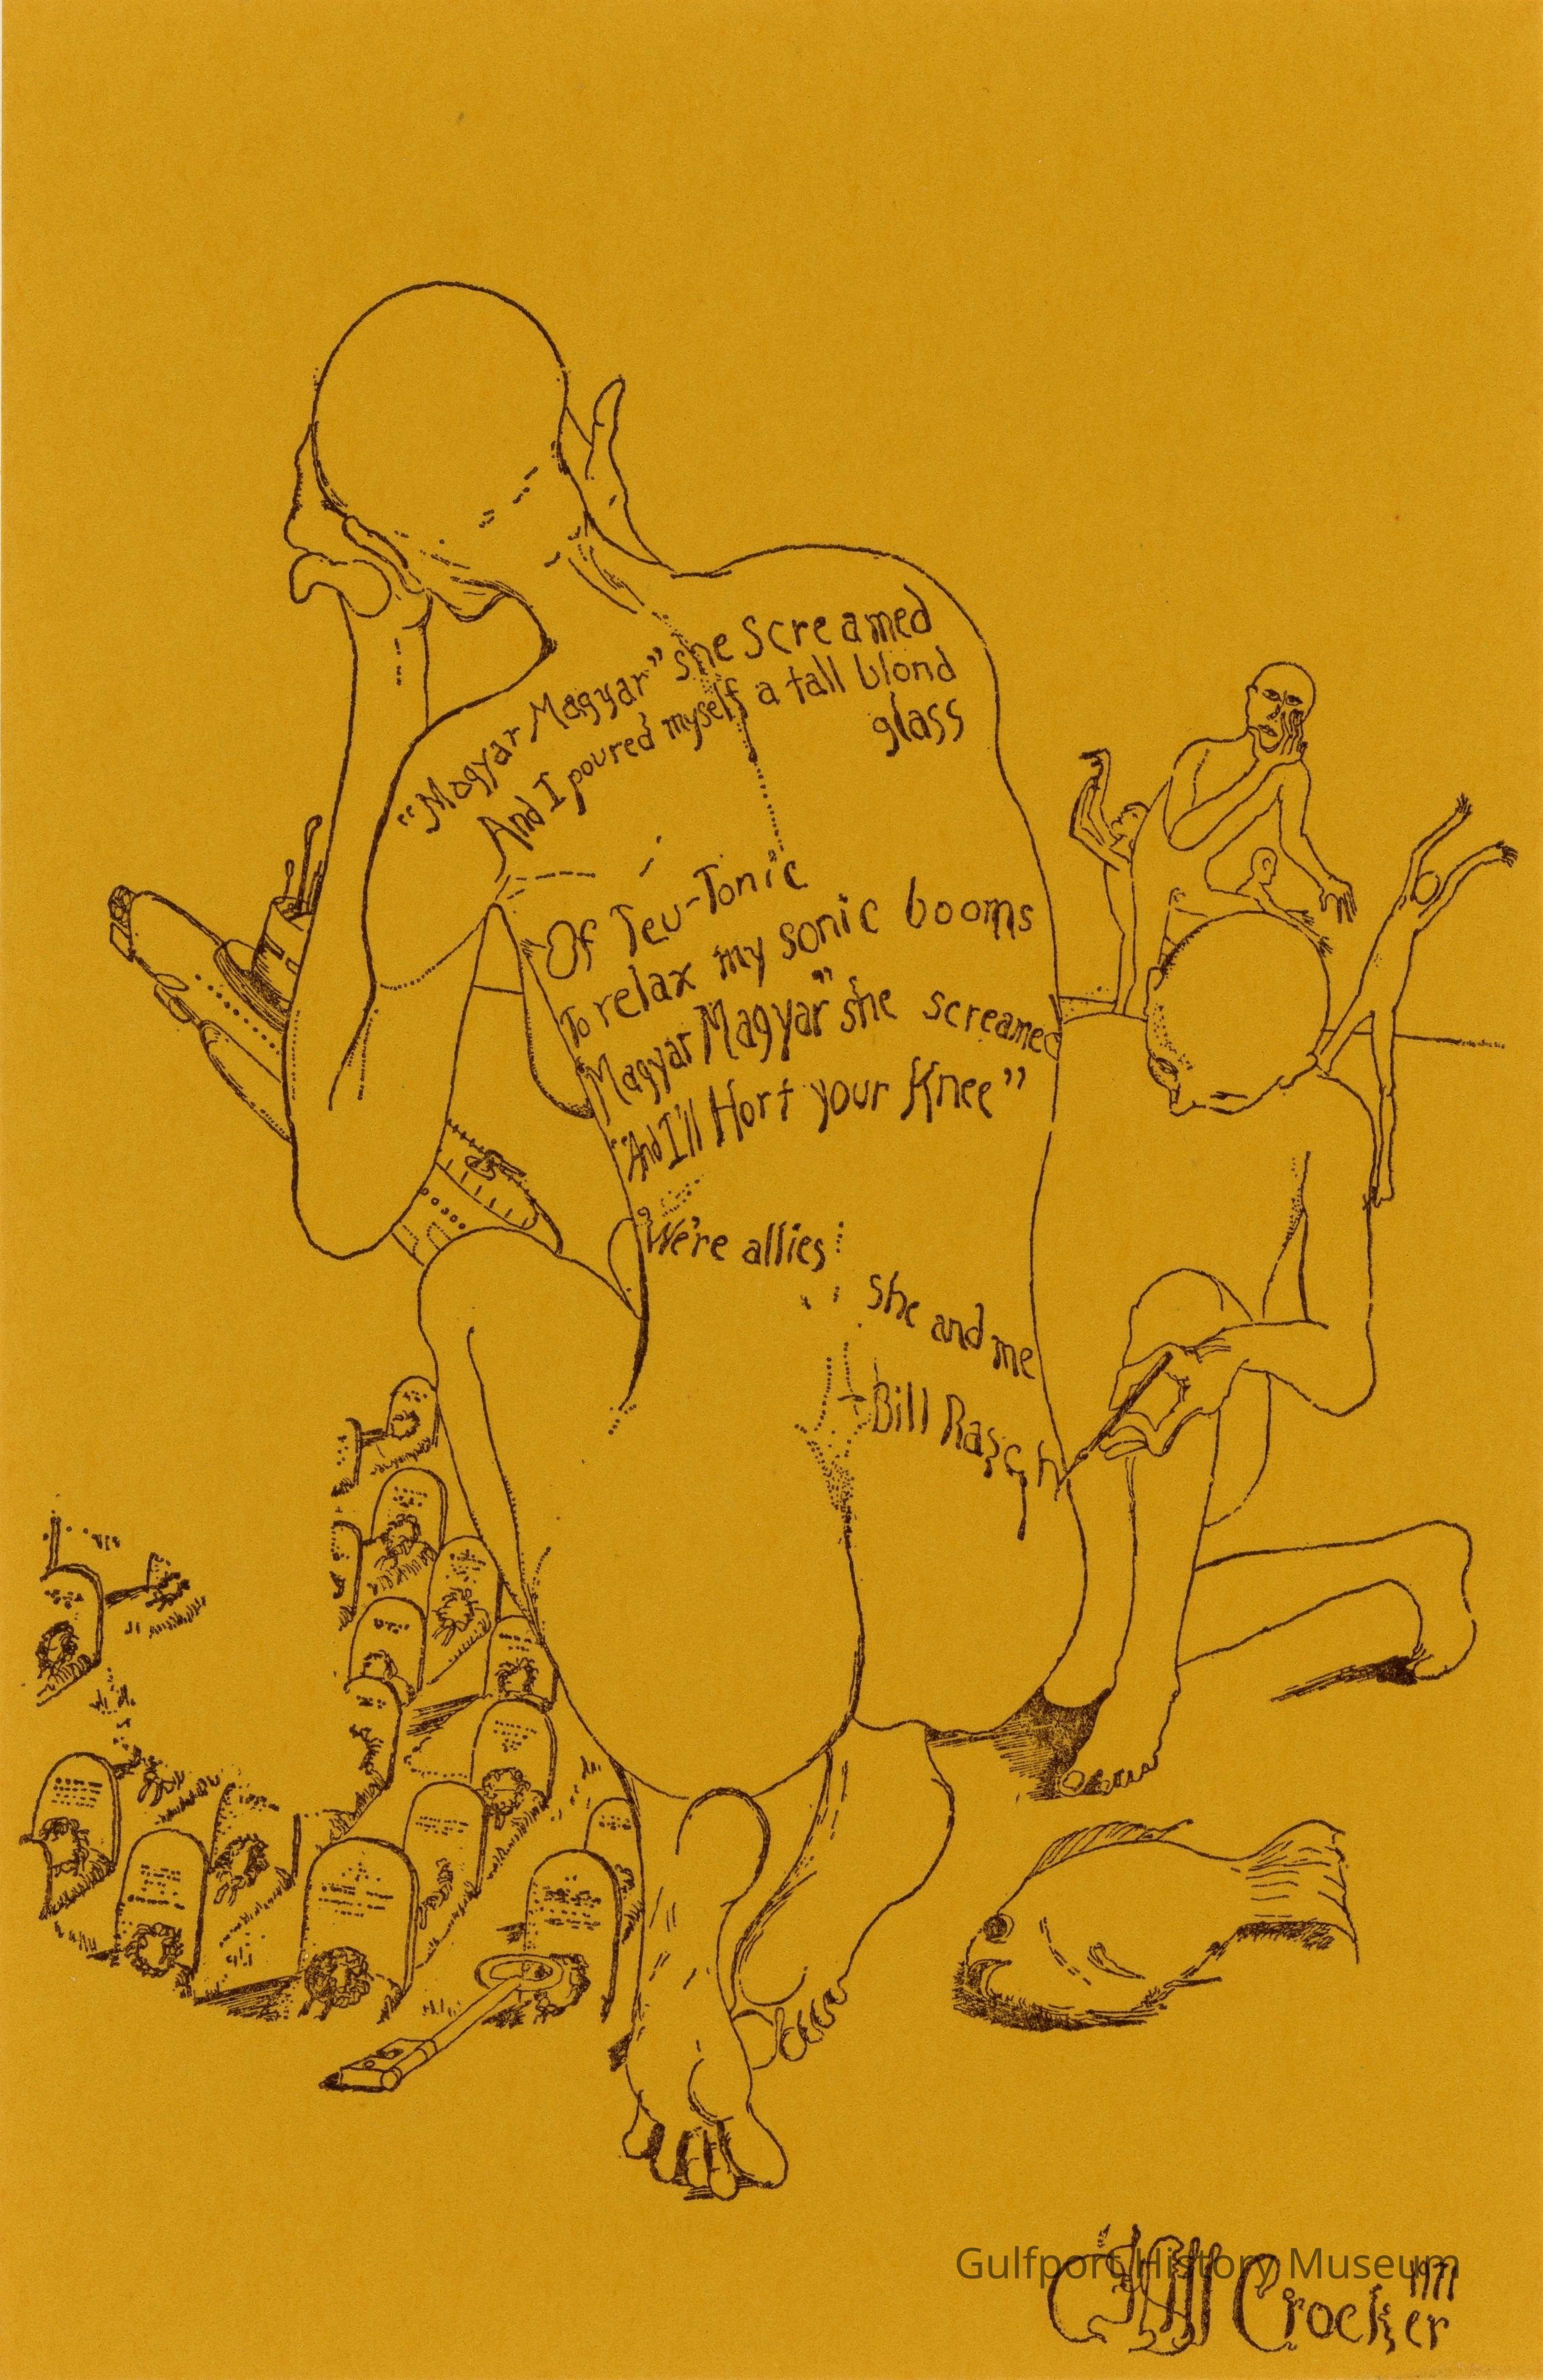 "Magyar Magyar" she Screamed
And I poured myself a tall blond
glass
Of Teu-Tonic
To relax my sonic booms
Magyar Magyar" she screamed
"And I'll Hort your Knee"
We're allies
she and me
Bill Rasch
Gulfport History Museum
Crocker 1971